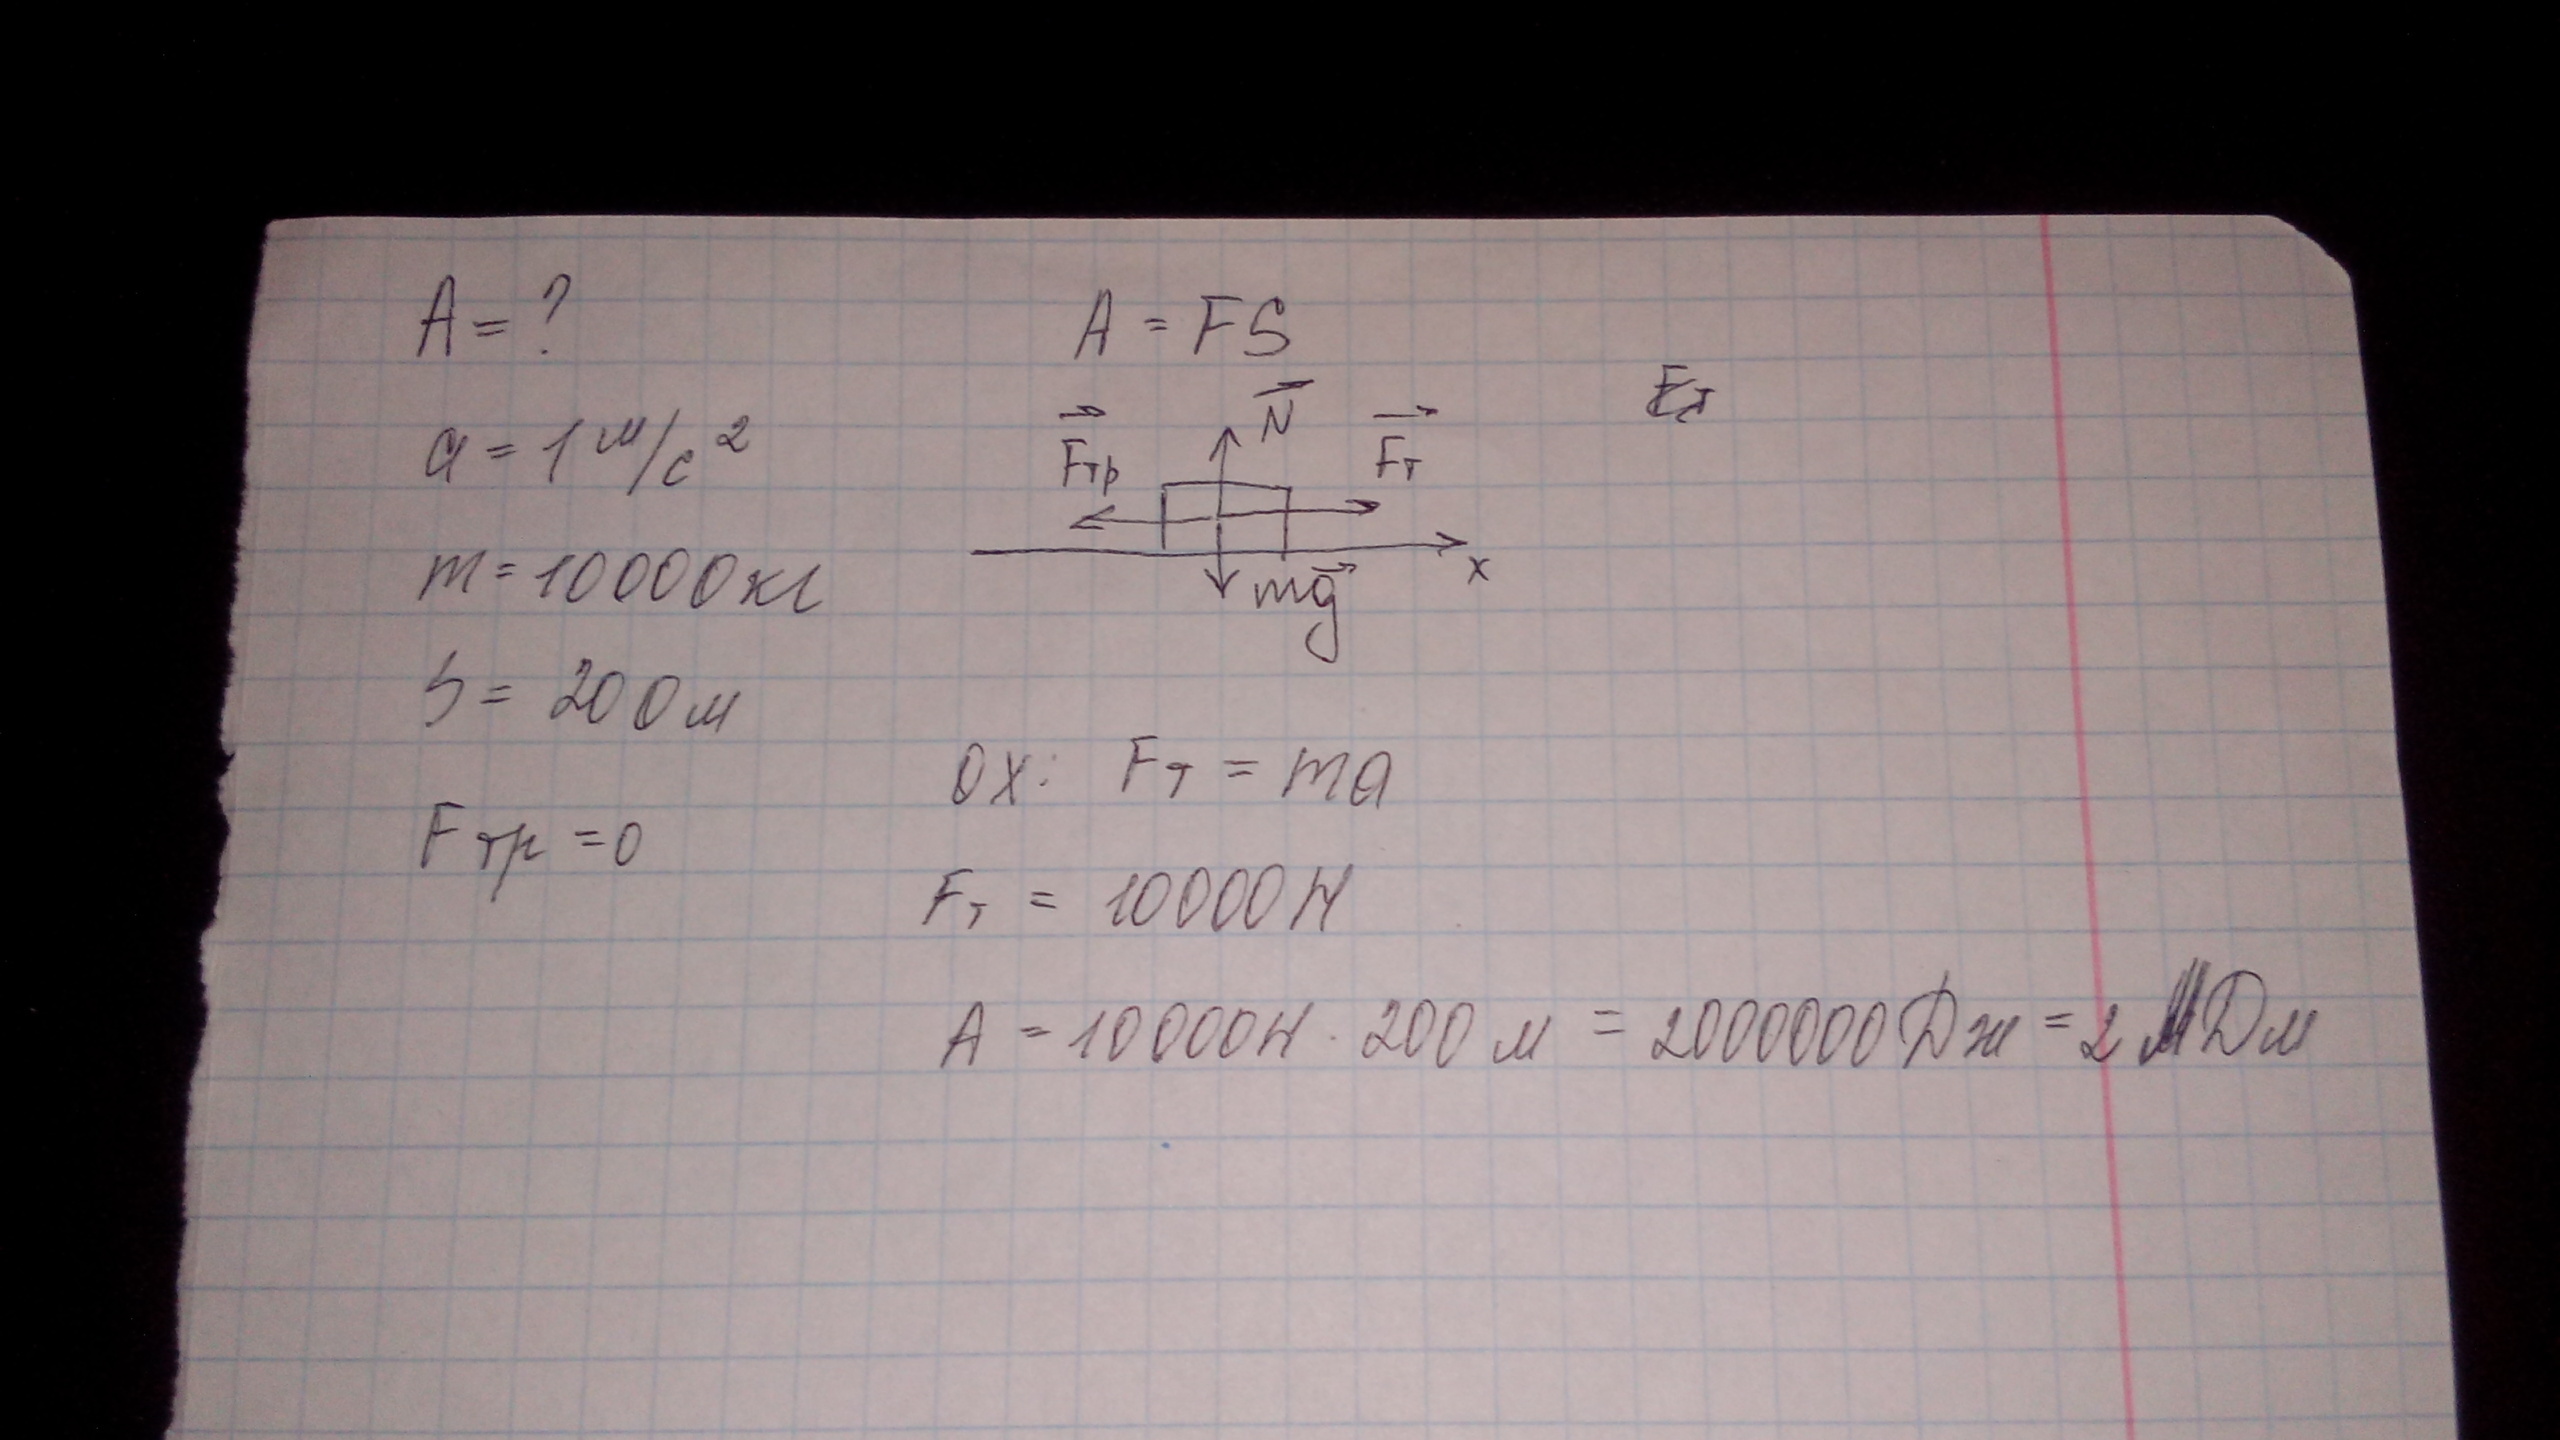 A = ?
a = 1 м/с²
m = 10000 кг
S = 200 м
Fтр = 0
A = FS
N
Fтр
Fт
mg
x
OX: Fт = ma
Fт = 10000 Н
A = 10000 Н · 200 м = 2000000 Дж = 2 МДж